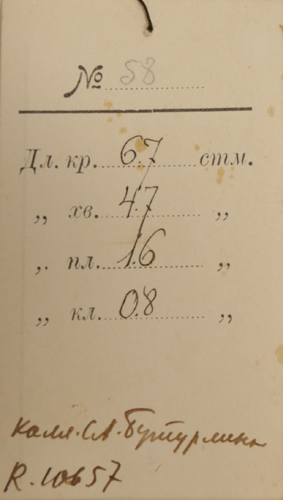 № 58
Дл. кр. 6.7 стм.
„ хв. 4.7 „
„ пл. 1.6 „
„ кл. 0.8 „
Колл. С.А. Бутурлина
R. 10657